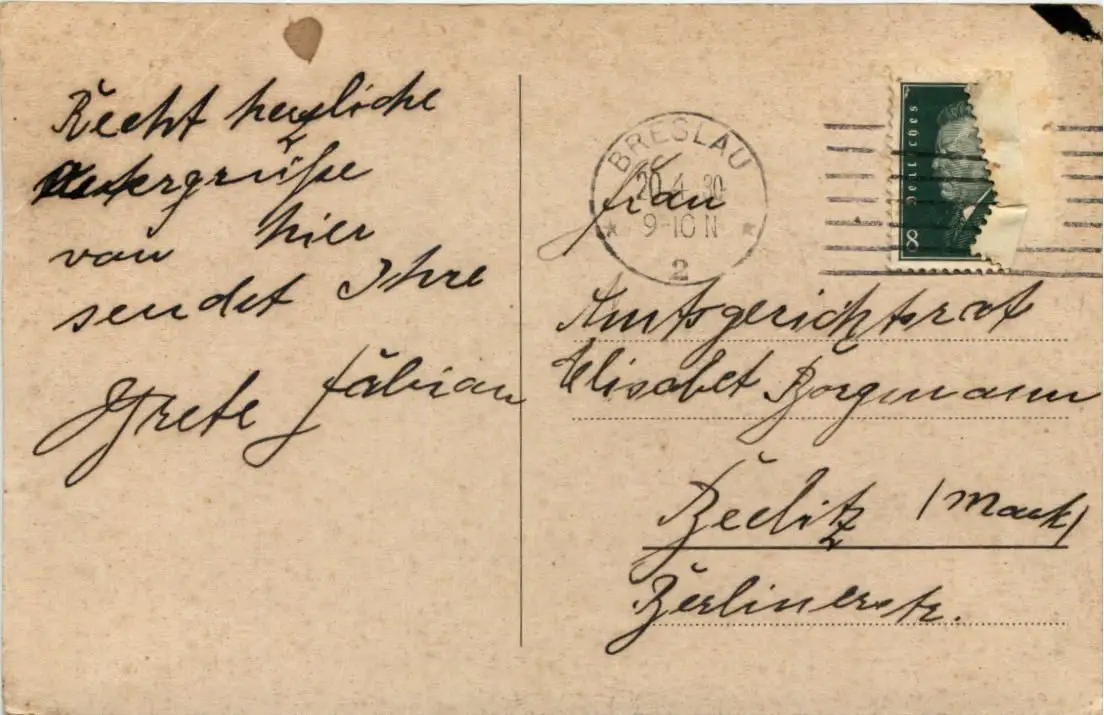 Recht herzliche
Ostergrüße
von hier
sendet Ihre
Grete Fabian
BRESLAU
20.4.30
9-10 N
2
Deutsches
8
Frau
Amtsgerichtsrat
Elisabet Borgmann
Beelitz (Mark)
Berlinerstr.